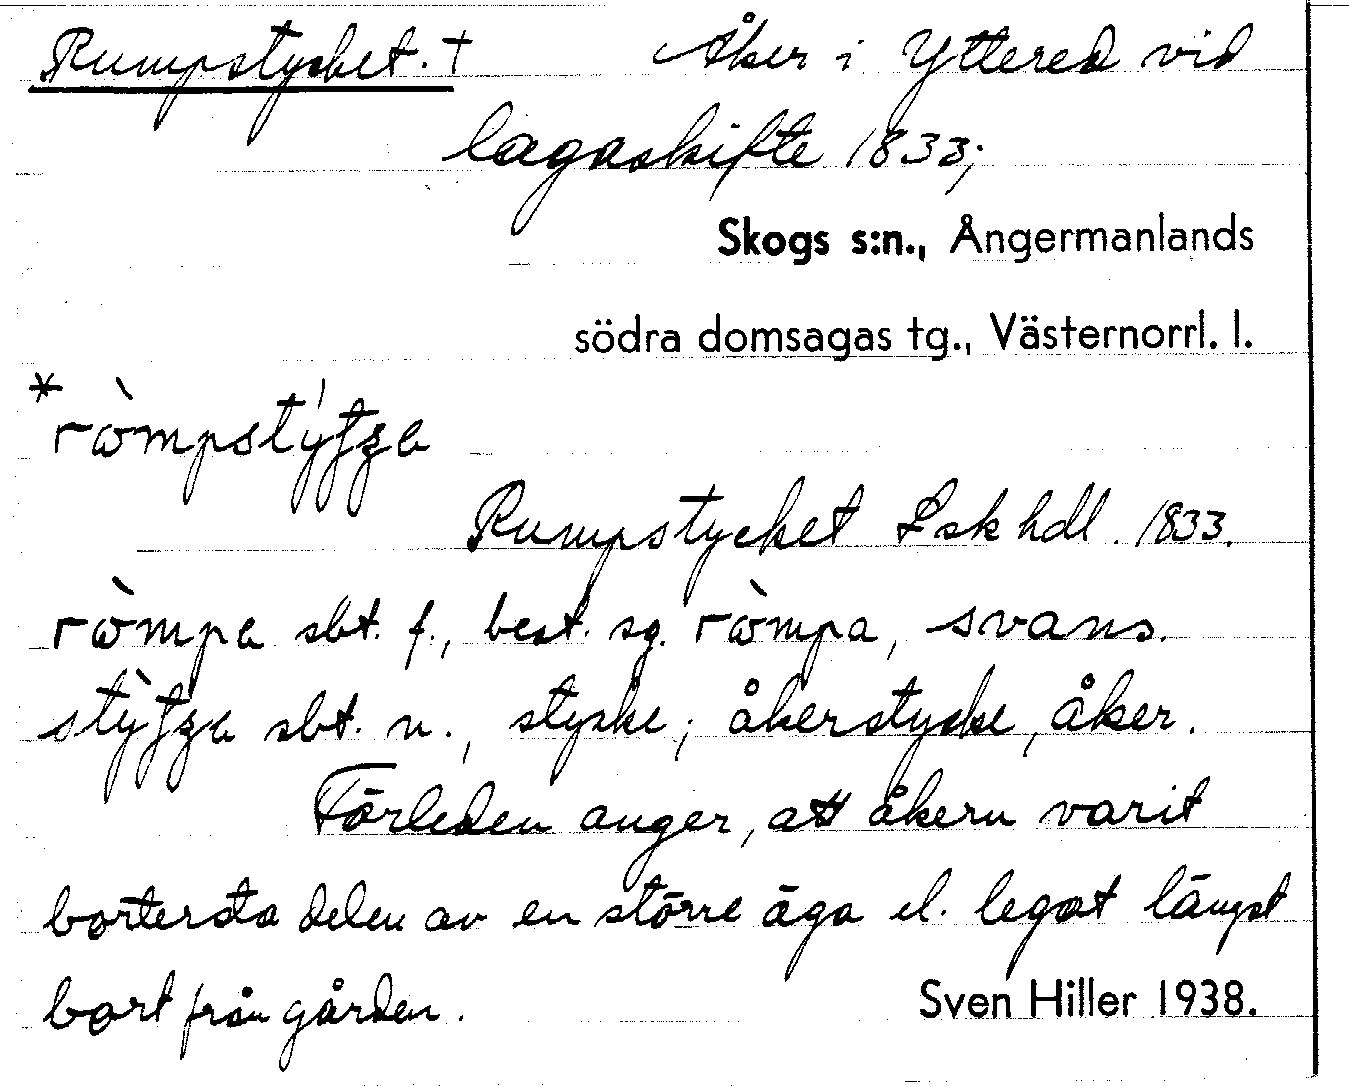 Rumpstycket. † Åker i Yttered vid
lagaskifte 1833;
Skogs s:n., Ångermanlands
södra domsagas tg., Västernorrl. l.
Rumpstycket Lsk hdl. 1833.
sbt. f., best. sg. , svans.
sbt. n., stycke; åkerstycke, åker.
Förleden anger, att åkern varit
bortersta delen av en större äga el. legat längst
bort från gården. Sven Hiller 1938.